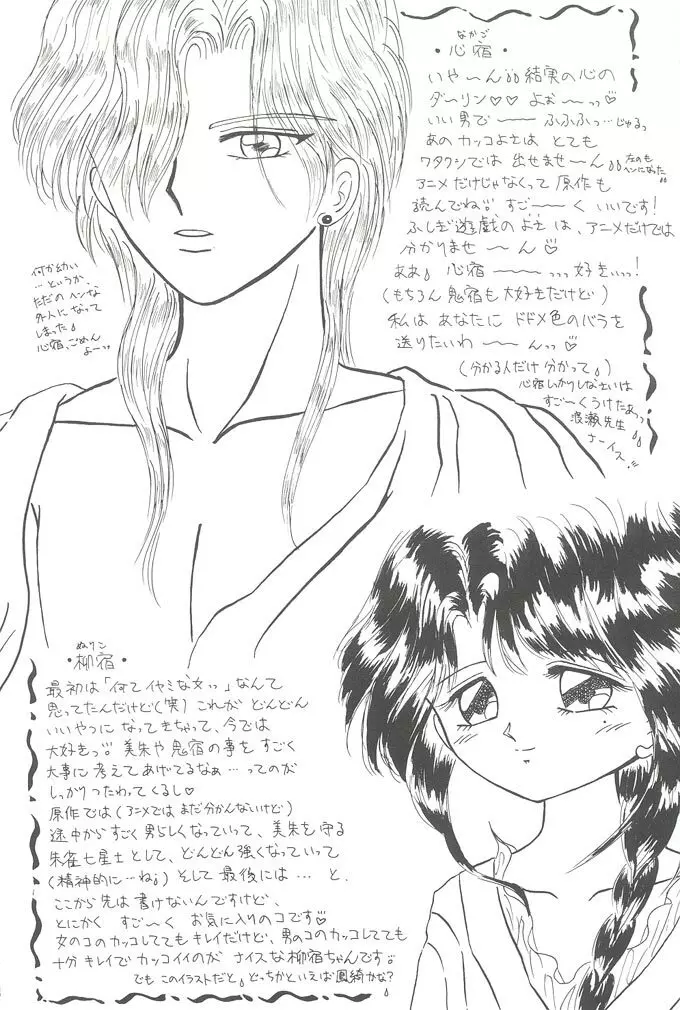 なかご
・心宿・
いや〜ん 結実の心の
ダーリン♡♡ よぉ〜〜っ♡
いい男で〜〜 ふふふっ…じゅるっ
あの カッコよさは とても
ワタクシでは 出せませ〜ん
左のも
ヘンになった
アニメだけじゃなくって 原作も
読んでね すご〜く いいです!
ふしぎ遊戯のよさ は、アニメだけでは
分かりませ〜ん♡
ああ 心宿〜〜っっっ好きぃっ!
(もちろん 鬼宿も 大好きだけど)
私は あなたに ドドメ色のバラを
送りたいわ〜〜んっっ♡
(分かる人だけ 分かって)
心宿しかりしなさいは
すご〜くうけたぁっっ
渡瀬先生
ナーイス!!
何か幼い
…というか、
ただの ヘンな
外人に なって
しまった
心宿、ごめん
よーっ
ぬりこ
・柳宿・
最初は「何てイヤミな女っっ」なんて
思ってたんだけど(笑) これが どんどん
いいやつに なってきちゃって、今では
大好きっ 美朱や 鬼宿の事を すごく
大事に 考えてあげてるなぁ…ってのが
しっかりつたわってくるし♡
原作では(アニメでは まだ分かんないけど)
途中から すごく 男らしくなっていって、美朱を守る
朱雀七星士として、どんどん強くなっていって
(精神的に…ね) そして 最後には… と、
ここから先は 書けないんですけど、
とにかく すご〜く お気に入りのコです♡
女のコのカッコしてても キレイだけど、男のコのカッコしてても
十分 キレイで カッコイイのが ナイスな柳宿ちゃんです。
でも このイラストだと、どっちかといえば鳳綺かな?